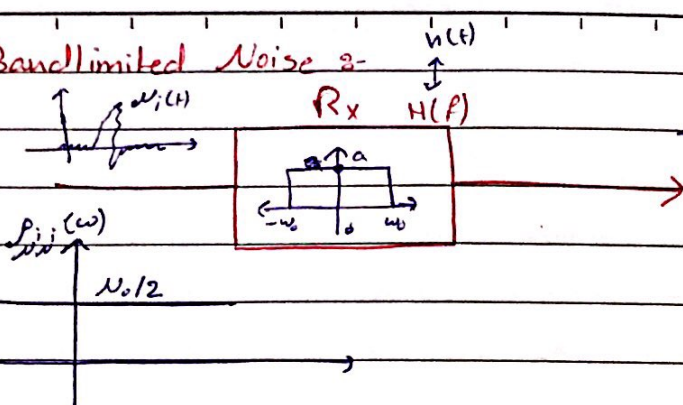 Bandlimited Noise :-
h(t)
Ni(t)
Rx H(f)
a
-ω₀ 0 ω₀
N₀/2